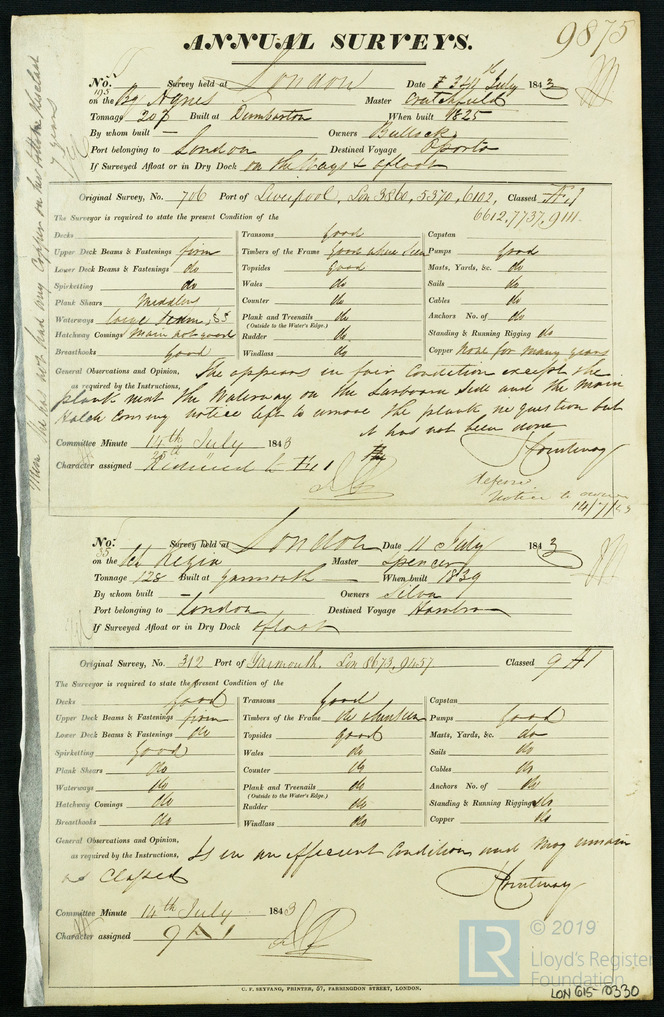 9875
ANNUAL SURVEYS.
No. 195 Survey held at London Date July 1843
on the Bg Agnes Master Crutchfield
Tonnage 207 Built at Dumbarton When built 1825
By whom built — Owners Bullock
Port belonging to London Destined Voyage Oporto
If Surveyed Afloat or in Dry Dock on the Ways & afloat
Original Survey, No. 706 Port of Liverpool, Lon 3860, 5370, 6102, Classed Æ 1
6612, 7737, 9111.
The Surveyor is required to state the present Condition of the
Decks Transoms good Capstan
Upper Deck Beams & Fastenings firm Timbers of the Frame Good where seen Pumps good
Lower Deck Beams & Fastenings do Topsides good Masts, Yards, &c. do
Spirketting do Wales do Sails do
Plank Shears Counter do Cables do
Waterways Plank and Treenails do Anchors No. of do
(Outside to the Water's Edge.)
Hatchway Comings Main not good Rudder do Standing & Running Rigging do
Breasthooks good Windlass do Copper None for many years
General Observations and Opinion, The appears in fair Condition except the
as required by the Instructions, plank next the Waterway on the Larboard Side and the main
Hatch Coming notice left to remove the plank in question but
it has not been done
Committee Minute 14th July 1843
Character assigned Æ 1
Notice to owner
14/7/43
No. 35 Survey held at London Date 11 July 1843
on the Regia Master Spencer
Tonnage 128 Built at Yarmouth When built 1839
By whom built — Owners Silva
Port belonging to London Destined Voyage Hambro
If Surveyed Afloat or in Dry Dock afloat
Original Survey, No. 312 Port of Yarmouth, Lon 8673, 9457 Classed 9 A 1
The Surveyor is required to state the present Condition of the
Decks good Transoms good Capstan
Upper Deck Beams & Fastenings firm Timbers of the Frame do where seen Pumps good
Lower Deck Beams & Fastenings do Topsides good Masts, Yards, &c. do
Spirketting good Wales do Sails do
Plank Shears do Counter do Cables do
Waterways do Plank and Treenails do Anchors No. of do
(Outside to the Water's Edge.)
Hatchway Comings do Rudder do Standing & Running Rigging do
Breasthooks do Windlass do Copper do
General Observations and Opinion, Is in an efficient Condition and may remain
as required by the Instructions, as Classed
Committee Minute 14th July 1843
Character assigned 9 A 1
C. F. SEYFANG, PRINTER, 57, FARRINGDON STREET, LONDON.
LR © 2019
Lloyd's Register
Foundation
LON 615-0330